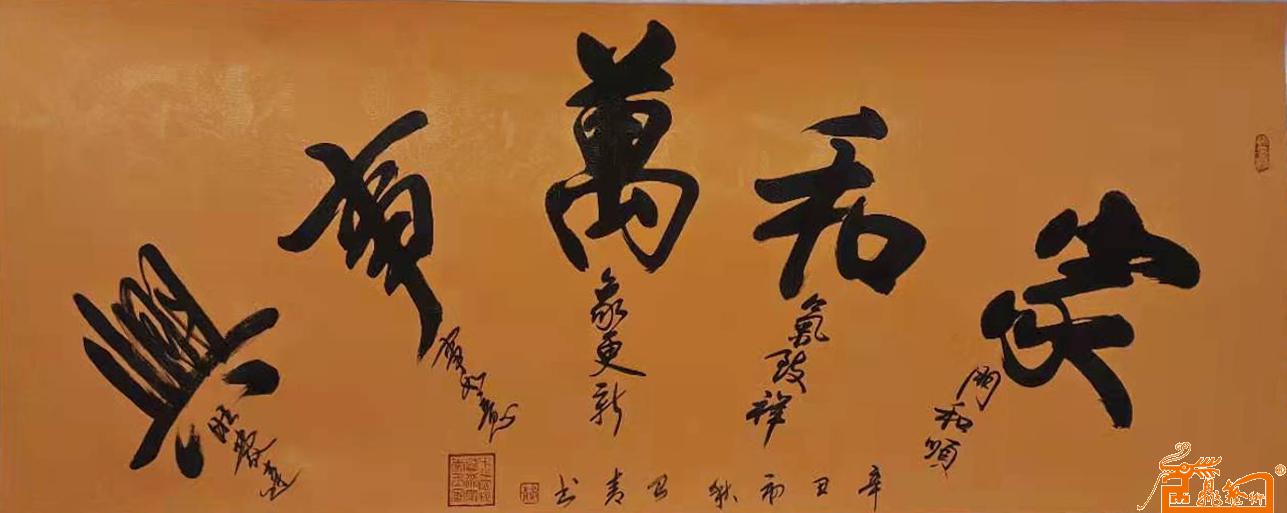 家和萬事興
門和順
氣致祥
象更新
事如意
旺發達
辛丑初秋青书